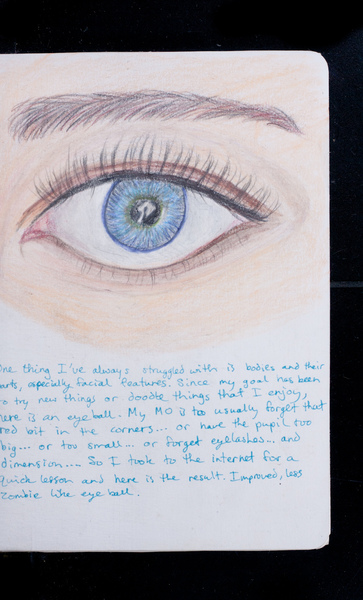 One thing I've always struggled with is bodies and their
parts, especially facial features. Since my goal has been
to try new things or doodle things that I enjoy,
here is an eyeball. My MO is to usually forget that
red bit in the corners... or have the pupil too
big... or too small... or forget eyelashes... and
dimension.... So I took to the internet for a
quick lesson and here is the result. Improved, less
Zombie like eyeball.